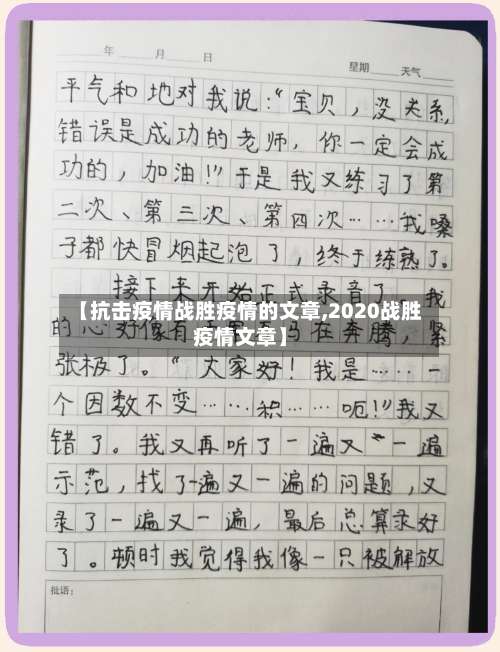 年 月 日
星期 天气
平气和地对我说:“宝贝,没关系,
错误是成功的老师,你一定会成
功的,加油!”于是我又练习了第
二次、第三次、第四次……我嗓
子都快冒烟起泡了,终于练熟了。
接下来开始正式录音了,我
【抗击疫情战胜疫情的文章,2020战胜
疫情文章】
的心好像有 马在奔腾,紧
张极了。“大家好!我是……一
个因数不变……积……呃!”我又
错了。我又再听了一遍又一遍
示范,找了一遍又一遍的问题,又
录了一遍又一遍,最后总算录好
了。顿时我觉得我像一只被解放
批语: